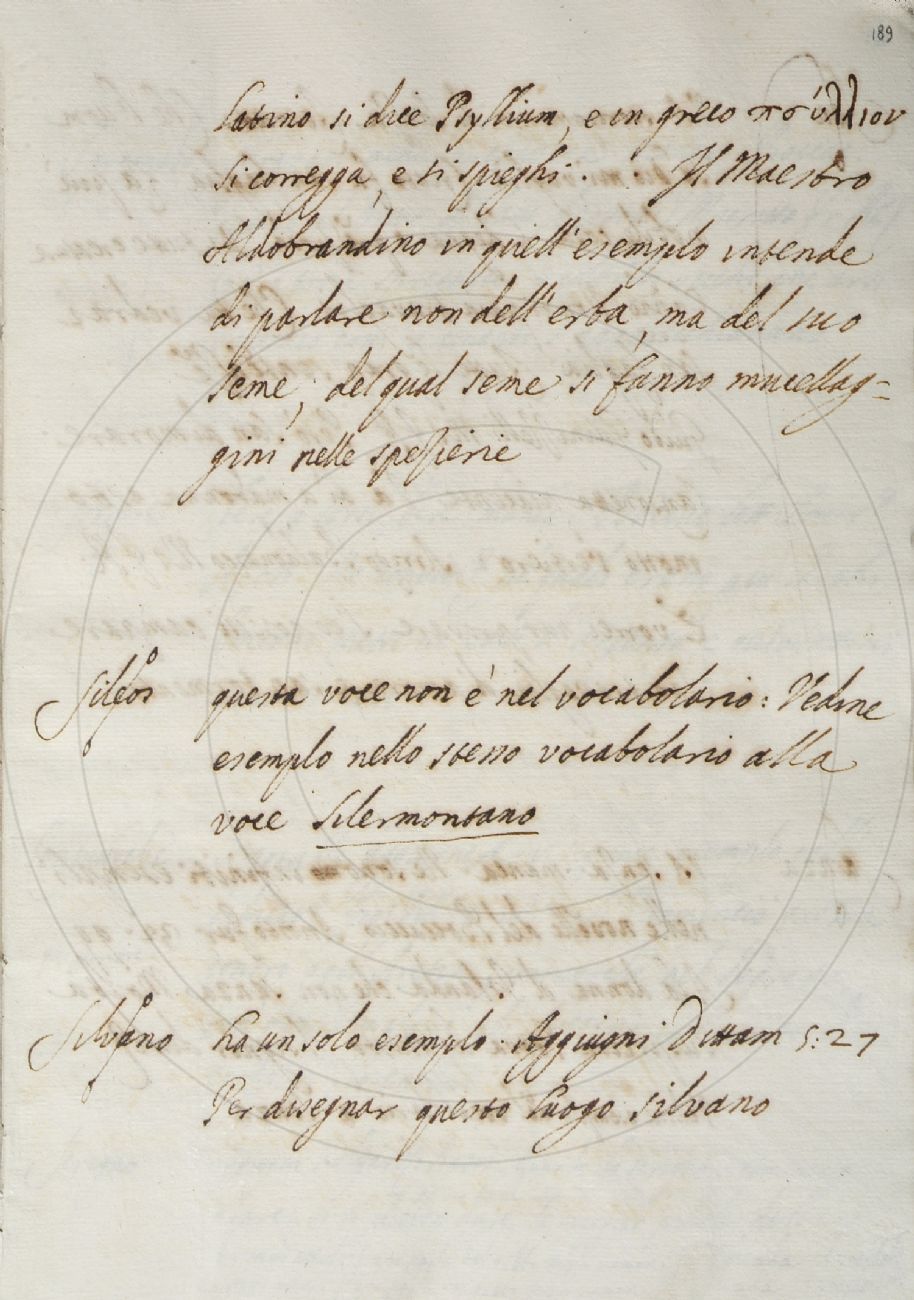 189
Latino si dice Psyllium, e in greco πσύλλιον
Si corregga, e si spieghi. Il Maestro
Aldobrandino in quell' esemplo intende
di parlare non dell' erba, ma del suo
seme, del qual seme si fanno mucellag=
gini nelle spezierie
Sileos questa voce non è nel vocabolario: Vedine
esemplo nello stesso vocabolario alla
voce Silermontano
Silvano ha un solo esemplo. Aggiugni Dittam 5:27
Per disegnar questo luogo silvano